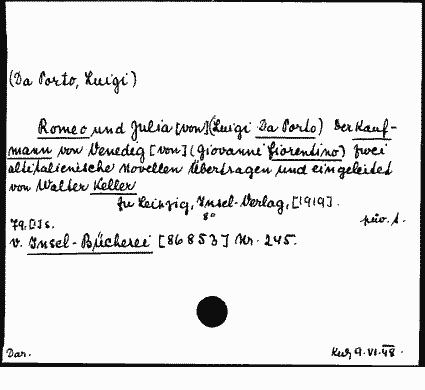 (Da Porto, Luigi)
Romeo und Julia [von] (Luigi Da Porto) Der Kauf-
mann von Venedig [von] (Giovanni Fiorentino) zwei
altitalienische Novellen Übertragen und eingeleitet
von Walter Keller
zu Leipzig, Insel-Verlag, [1919].
8°
79.[1]s. priv. A.
v. Insel-Bücherei [86853] Nr. 245.
Dar. 9.VI.48.